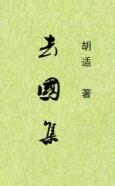 去國集
胡适 著